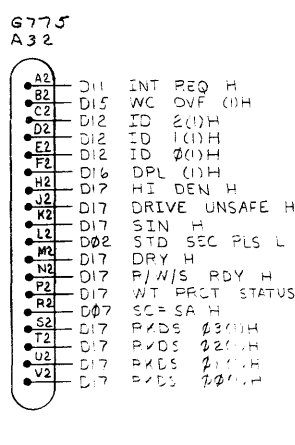 G775
A32
A2 D11 INT REQ H
B2 D15 WC OVF (1)H
C2 D12 ID 2(1)H
D2 D12 ID 1(1)H
E2 D12 ID Ø(1)H
F2 D16 DPL (1)H
H2 D17 HI DEN H
J2 D17 DRIVE UNSAFE H
K2 D17 SIN H
L2 DØ2 STD SEC PLS L
M2 D17 DRY H
N2 D17 R/W/S RDY H
P2 D17 WT PRCT STATUS
R2 DØ7 SC=SA H
S2 D17 RKDS Ø3(1)H
T2 D17 RKDS Ø2(1)H
U2 D17 RKDS Ø1(1)H
V2 D17 RKDS ØØ(1)H